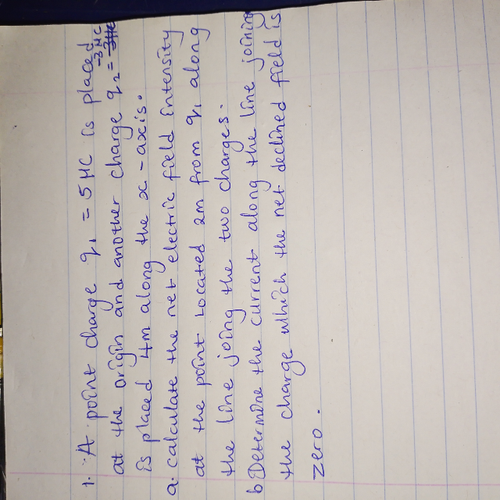 1. A point charge q₁ = 5 μC is placed
at the origin and another charge q₂ = -3 μC
is placed 4m along the x-axis.
a. calculate the net electric field intensity
at the point located 2m from q₁ along
the line joing the two charges.
b. Determine the current along the line joining
the charge which the net declined field is
zero.